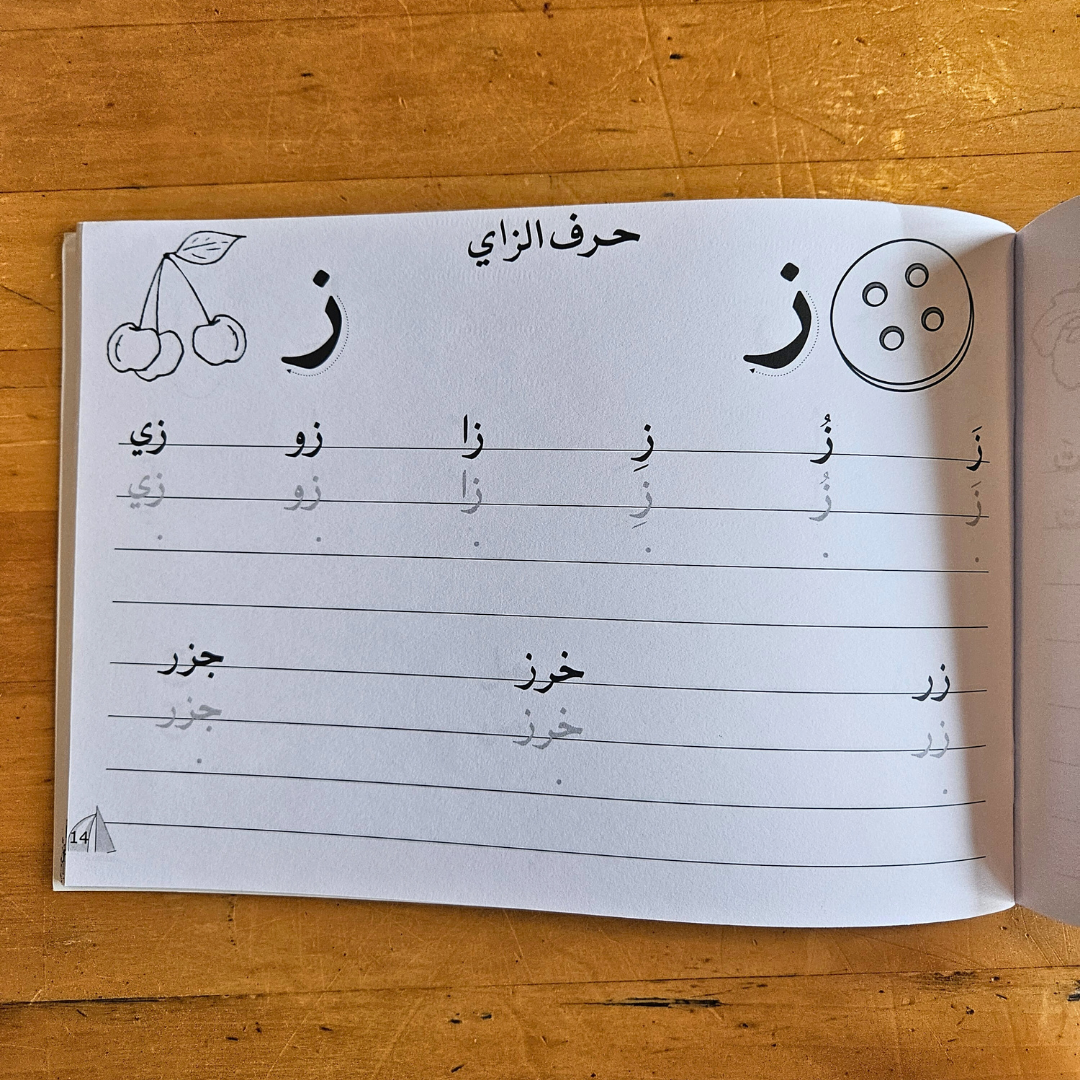 حرف الزاي
ز ز
زَ زُ زِ زا زو زي
زَ زُ زِ زا زو زي
زر خرز جزر
زر خرز جزر
14